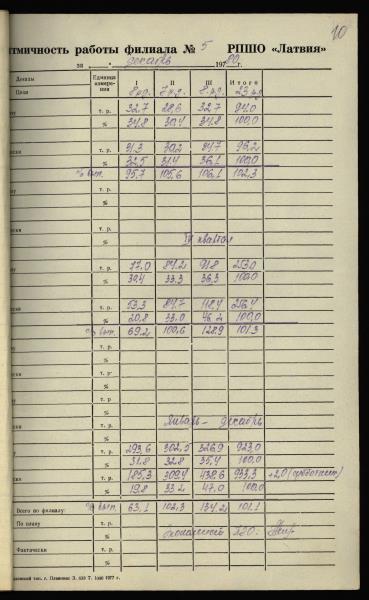 10
итмичность работы филиала № 5 РПШО «Латвия»
за " декабрь 1980 г.
Декады Единица измерения I II III Итого
Цехи 8 р.д. 7 р.д. 8 р.д. 23 р.д.
ну т. р. 32,7 28,6 32,7 94,0
% 34,8 30,4 34,8 100,0
ески т. р. 31,3 30,2 34,7 96,2
% 32,5 31,4 36,1 100,0
% вып. 95,7 105,6 106,1 102,3
ну т. р.
%
ески т. р.
% IV квартал
ну т. р. 77,0 84,2 91,8 253,0
% 30,4 33,3 36,3 100,0
ески т. р. 53,3 84,7 118,4 256,4
% 20,8 33,0 46,2 100,0
% вып. 69,2 100,6 128,9 101,3
ну т. р
%
ески т. р.
% Январь - декабрь
ну т. р. 293,6 302,5 326,9 923,0
% 31,8 32,8 35,4 100,0
ески т. р. 185,3 309,4 438,6 933,3
% 19,8 33,2 47,0 100,0
Всего по филиалу: % вып. 63,1 102,3 134,2 101,1
По плану т. р.
%
Фактически т. р.
%